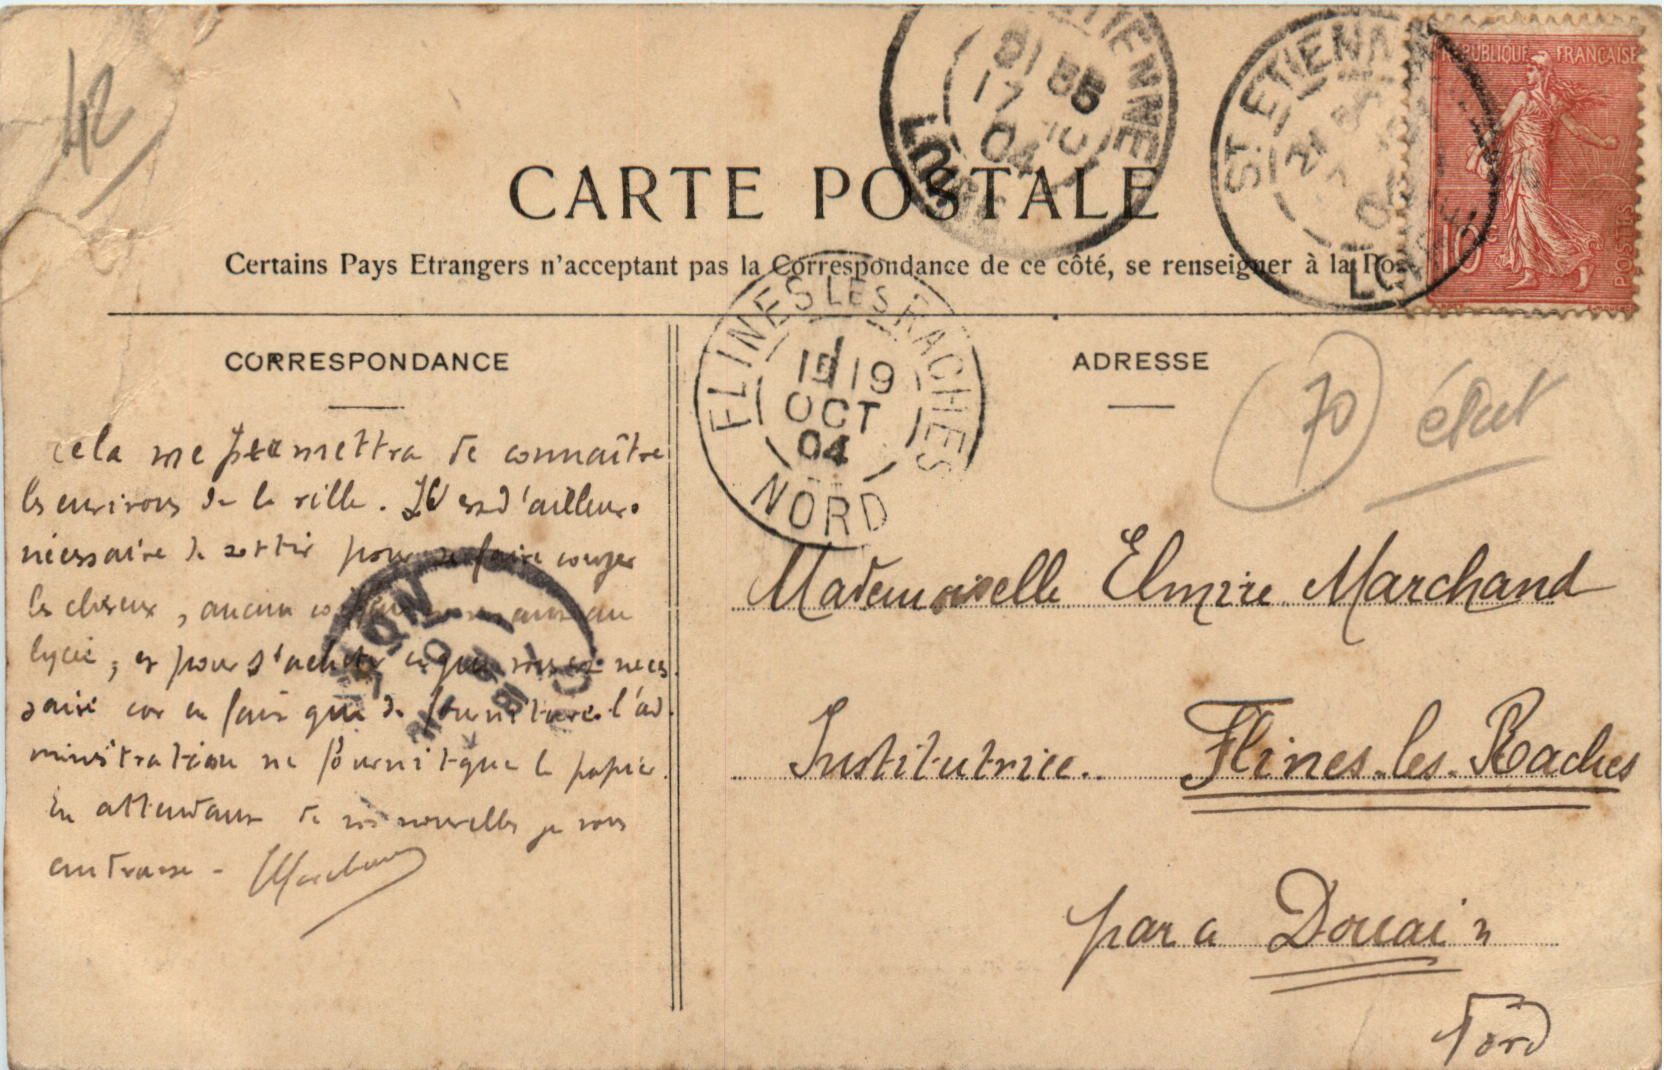 42
CARTE POSTALE
Certains Pays Etrangers n'acceptant pas la Correspondance de ce côté, se renseigner à la Pos
ST ETIENNE
LOIRE
17
04
ETIENNE
LOIRE
RÉPUBLIQUE FRANÇAISE
10c
POSTES
FLINES LES RACHES
19
OCT
04
NORD
CORRESPONDANCE
cela me permettra de connaître
les environs de la ville. Il est d'ailleurs
nécessaire de sortir pour se faire couper
les cheveux, aucun au
lycée, et pour s'acheter ce qui vous est néces
saire car en fait que de fourniture l'ad
ministration ne fournit que le papier.
En attendant de vos nouvelles je vous
embrasse - Marchand
ADRESSE
70
état
Mademoiselle Elmire Marchand
Institutrice. Flines-les-Raches
par a Douai
Nord